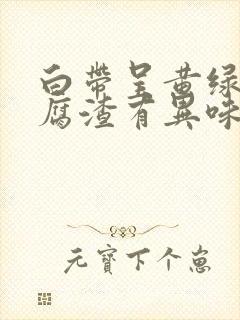 白帶呈黄绿
腐渣有異味
元寶下个崽